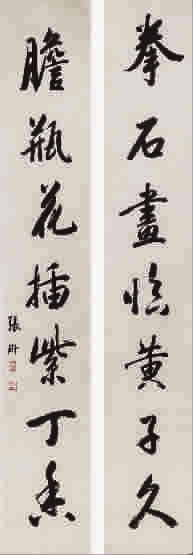 拳石畫臨黄子久
膽瓶花插紫丁香
張